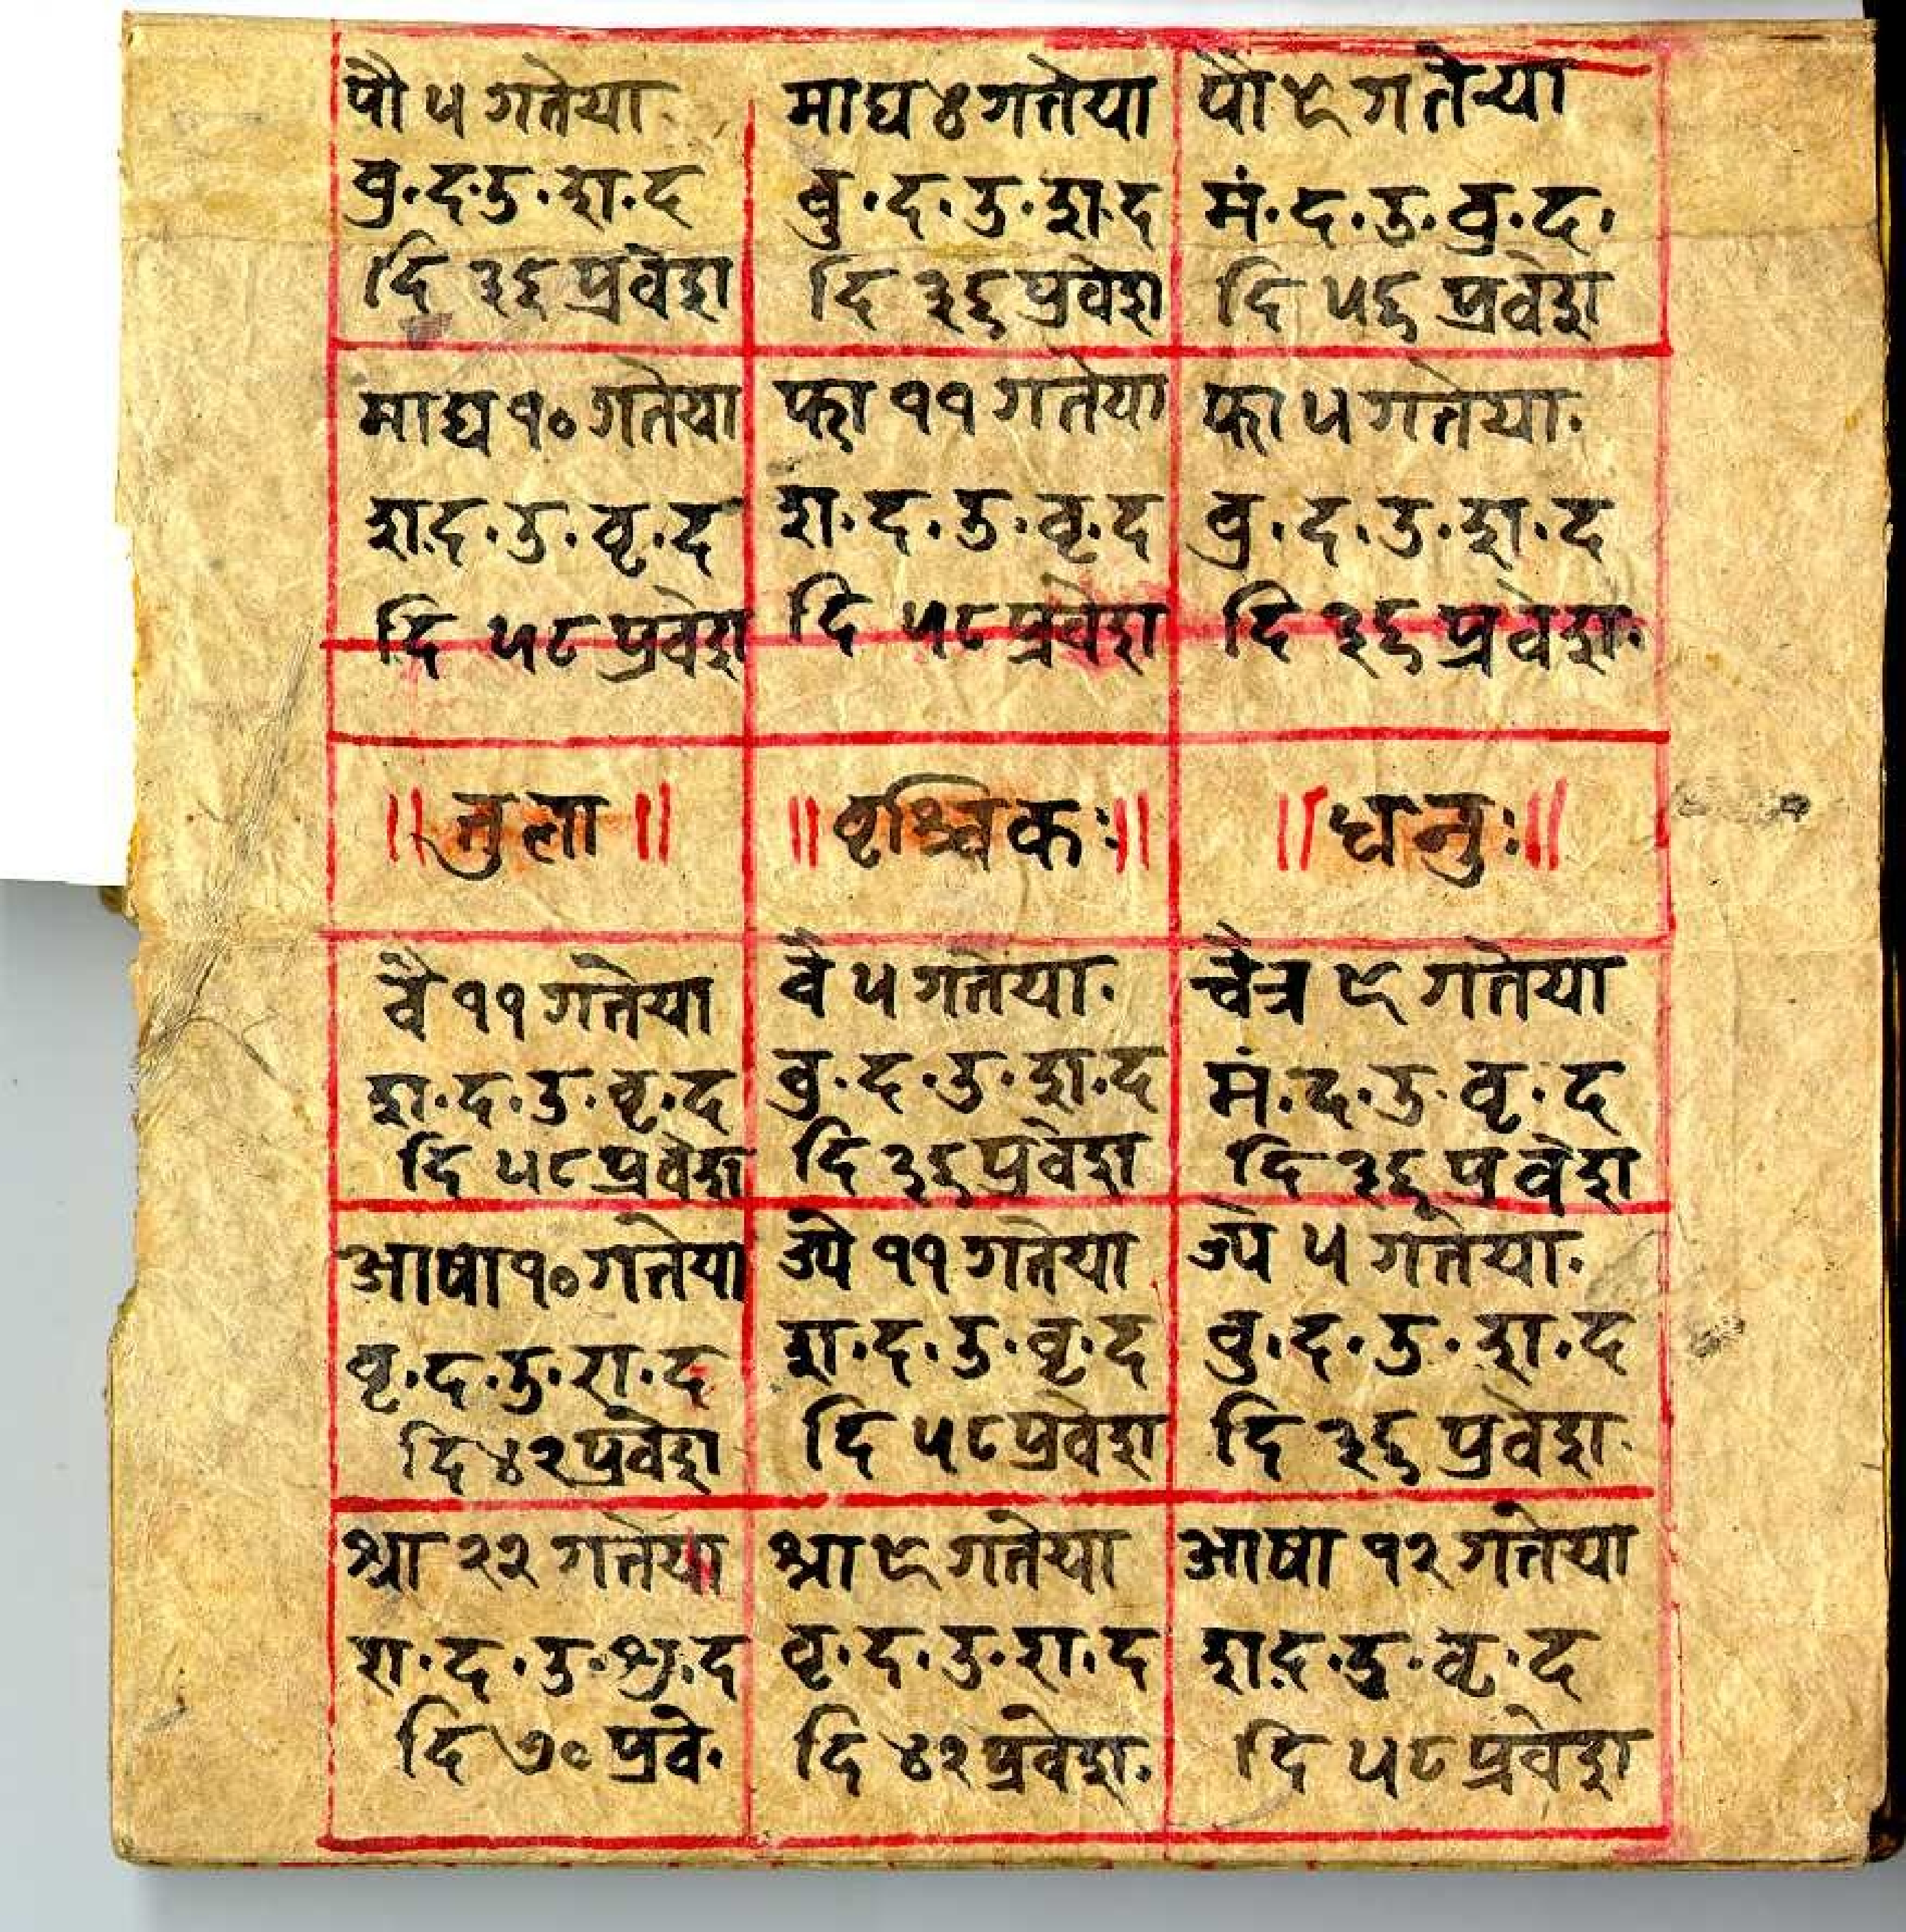 पौ ५ गतेया
वु·द·उ·श·द
दि ३६ प्रवेश
माघ ४ गतेया
वु·द·उ·श·द
दि ३६ प्रवेश
पौ ९ गतेया
मं·द·उ·वु·द·
दि ५६ प्रवेश
माघ १० गतेया
श·द·उ·वृ·द
दि ५८ प्रवेश
फा ११ गतेया
श·द·उ·वृ·द
दि ५८ प्रवेश
फा ५ गतेया·
वु·द·उ·श·द
दि ३६ प्रवेश·
॥ तुला ॥
॥ वृश्चिकः ॥
॥ धनुः ॥
वै ११ गतेया
श·द·उ·वृ·द
दि ५८ प्रवेश
वै ५ गतेया·
वु·द·उ·श·द
दि ३६ प्रवेश
चैत्र ९ गतेया
मं·द·उ·वृ·द
दि ३६ प्रवेश
आषा १० गतेया
वृ·द·उ·रा·द
दि ४२ प्रवेश
ज्ये ११ गतेया
श·द·उ·वृ·द
दि ५८ प्रवेश
ज्ये ५ गतेया·
वु·द·उ·श·द
दि ३६ प्रवेश·
श्रा २२ गतेया
रा·द·उ·शु·द
दि ७० प्रवे·
श्रा ९ गतेया
वृ·द·उ·रा·द
दि ४२ प्रवेश·
आषा १२ गतेया
श·द·उ·वृ·द
दि ५८ प्रवेश